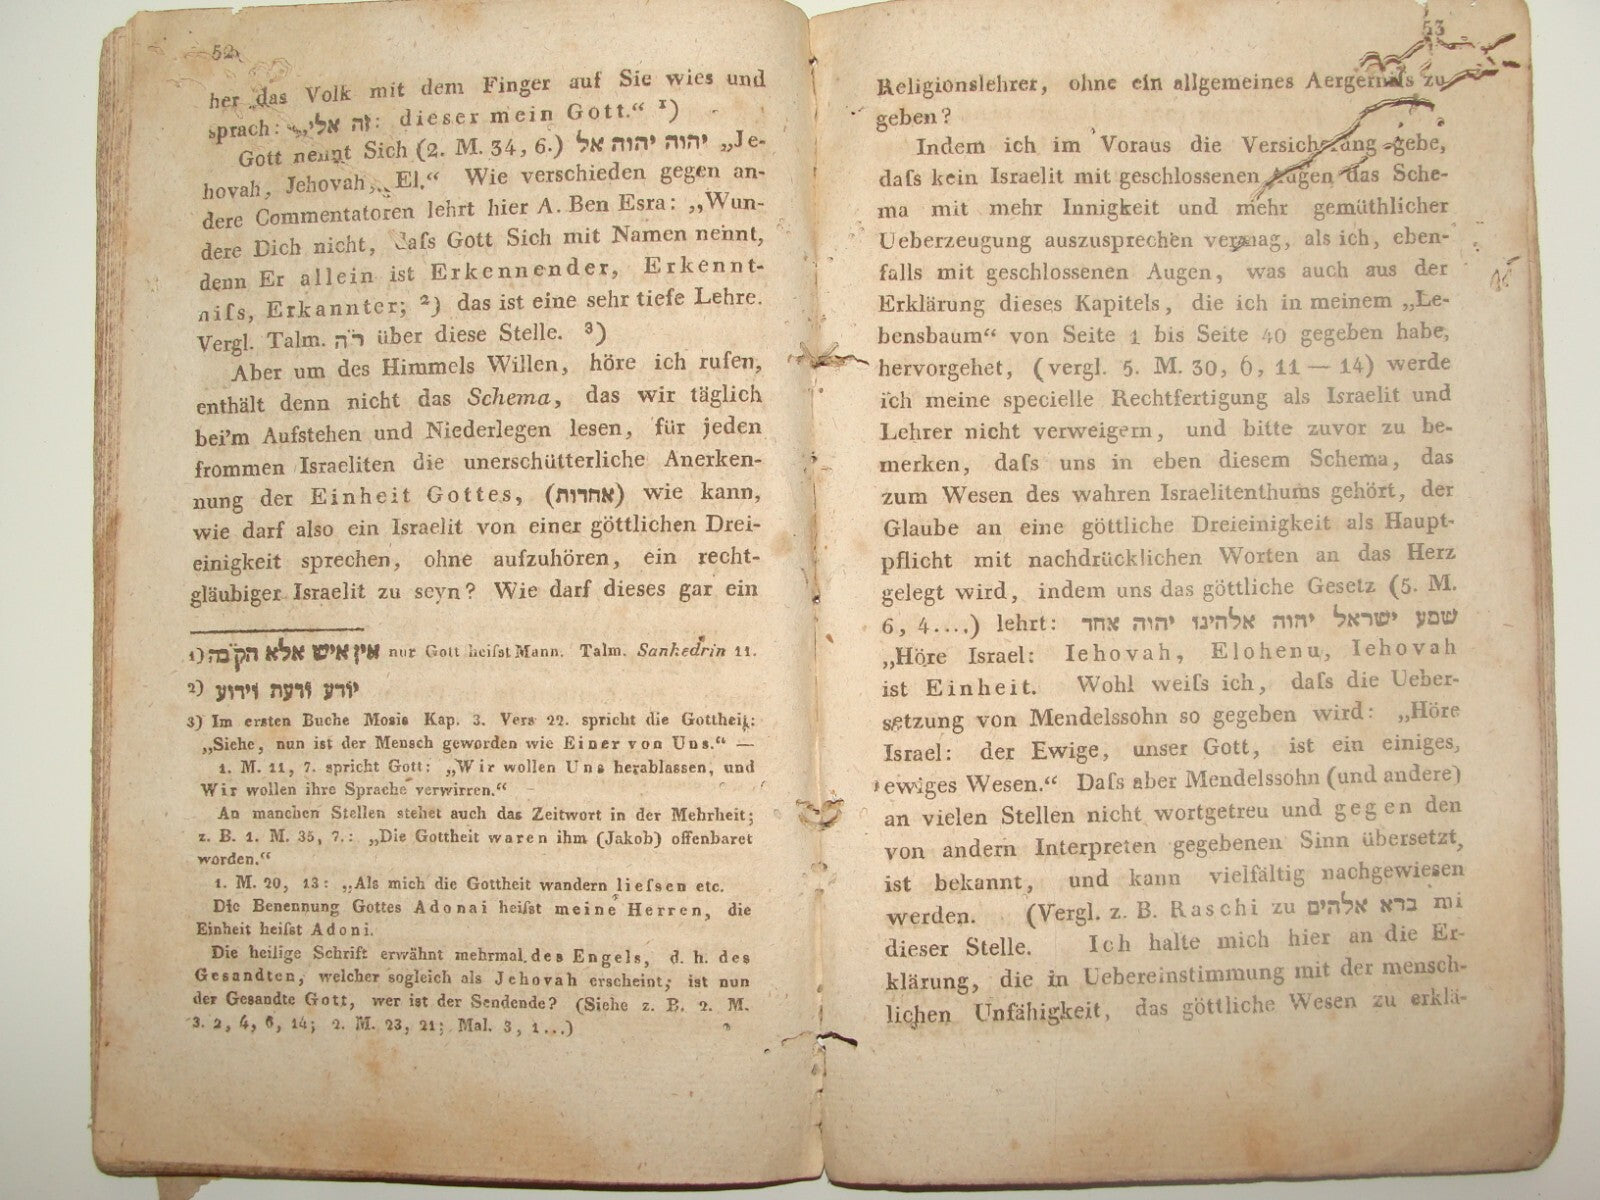 52
her das Volk mit dem Finger auf Sie wies und
sprach: „זה אלי: dieser mein Gott.“ 1)
Gott nennt Sich (2. M. 34, 6.) יהוה יהוה אל „Je-
hovah, Jehovah, El.“ Wie verschieden gegen an-
dere Commentatoren lehrt hier A. Ben Esra: „Wun-
dere Dich nicht, daſs Gott Sich mit Namen nennt,
denn Er allein ist Erkennender, Erkennt-
niſs, Erkannter; 2) das ist eine sehr tiefe Lehre.
Vergl. Talm. ר"ה über diese Stelle. 3)
Aber um des Himmels Willen, höre ich rufen,
enthält denn nicht das Schema, das wir täglich
bei'm Aufstehen und Niederlegen lesen, für jeden
frommen Israeliten die unerschütterliche Anerken-
nung der Einheit Gottes, (אחדות) wie kann,
wie darf also ein Israelit von einer göttlichen Drei-
einigkeit sprechen, ohne aufzuhören, ein recht-
gläubiger Israelit zu seyn? Wie darf dieses gar ein
1) אין איש אלא הקבה nur Gott heiſst Mann. Talm. Sanhedrin 11.
2) יודע ודעת וידוע
3) Im ersten Buche Mosis Kap. 3. Vers 22. spricht die Gottheit:
„Siehe, nun ist der Mensch geworden wie Einer von Uns.“ —
1. M. 11, 7. spricht Gott: „Wir wollen Uns herablassen, und
Wir wollen ihre Sprache verwirren.“
An manchen Stellen stehet auch das Zeitwort in der Mehrheit;
z. B. 1. M. 35, 7.: „Die Gottheit waren ihm (Jakob) offenbaret
worden.“
1. M. 20, 13: „Als mich die Gottheit wandern lieſsen etc.
Die Benennung Gottes Adonai heiſst meine Herren, die
Einheit heiſst Adoni.
Die heilige Schrift erwähnt mehrmal des Engels, d. h. des
Gesandten, welcher sogleich als Jehovah erscheint; ist nun
der Gesandte Gott, wer ist der Sendende? (Siehe z. B. 2. M.
3. 2, 4, 6, 14; 2. M. 23, 21; Mal. 3, 1...)
53
Religionslehrer, ohne ein allgemeines Aergerniſs zu
geben?
Indem ich im Voraus die Versicherung gebe,
daſs kein Israelit mit geschlossenen Augen das Sche-
ma mit mehr Innigkeit und mehr gemüthlicher
Ueberzeugung auszusprechen vermag, als ich, eben-
falls mit geschlossenen Augen, was auch aus der
Erklärung dieses Kapitels, die ich in meinem „Le-
bensbaum“ von Seite 1 bis Seite 40 gegeben habe,
hervorgehet, (vergl. 5. M. 30, 6, 11 — 14) werde
ich meine specielle Rechtfertigung als Israelit und
Lehrer nicht verweigern, und bitte zuvor zu be-
merken, daſs uns in eben diesem Schema, das
zum Wesen des wahren Israelitenthums gehört, der
Glaube an eine göttliche Dreieinigkeit als Haupt-
pflicht mit nachdrücklichen Worten an das Herz
gelegt wird, indem uns das göttliche Gesetz (5. M.
6, 4....) lehrt: שמע ישראל יהוה אלהינו יהוה אחד
„Höre Israel: Iehovah, Elohenu, Iehovah
ist Einheit. Wohl weiſs ich, daſs die Ueber-
setzung von Mendelssohn so gegeben wird: „Höre
Israel: der Ewige, unser Gott, ist ein einiges,
ewiges Wesen.“ Daſs aber Mendelssohn (und andere)
an vielen Stellen nicht wortgetreu und gegen den
von andern Interpreten gegebenen Sinn übersetzt,
ist bekannt, und kann vielfältig nachgewiesen
werden. (Vergl. z. B. Raschi zu ברא אלהים mi
dieser Stelle. Ich halte mich hier an die Er-
klärung, die in Uebereinstimmung mit der mensch-
lichen Unfähigkeit, das göttliche Wesen zu erklä-